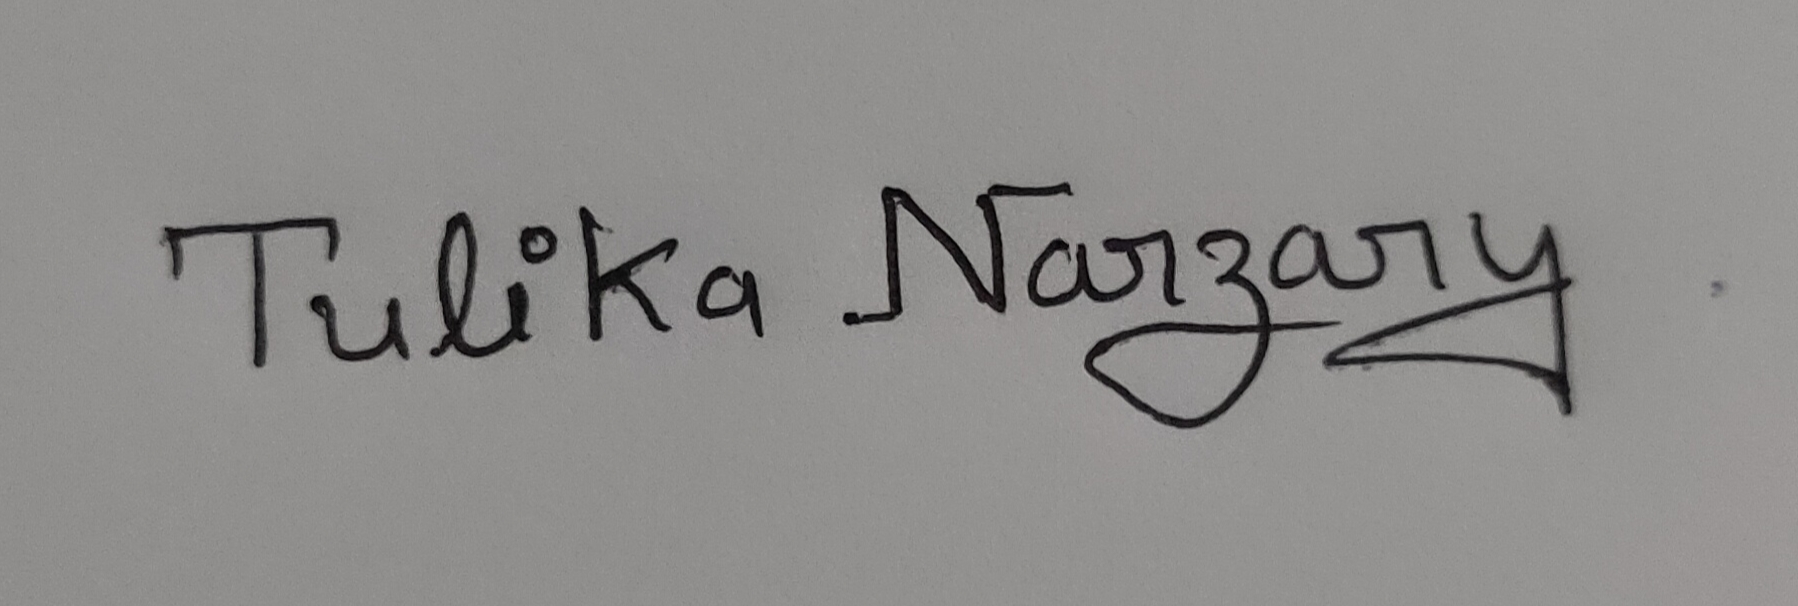 Tulika Narzary